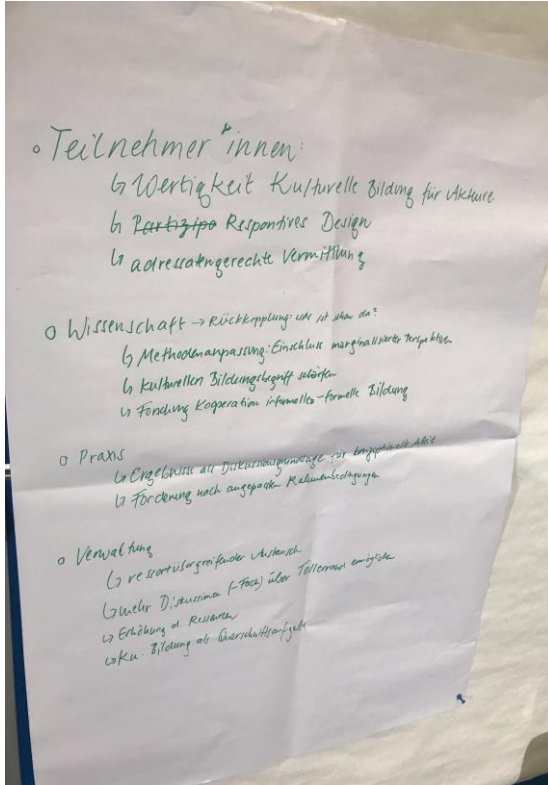 o Teilnehmer*innen:
↳ Wertigkeit Kulturelle Bildung für Akteure
↳ Partizipa Responsives Design
↳ adressatengerechte Vermittlung
o Wissenschaft → Rückkopplung: was ist schon da?
↳ Methodenanpassung: Einschluss marginalisierter Perspektiven
↳ Kulturellen Bildungsbegriff schärfen
↳ Forschung Kooperation informelle-formelle Bildung
o Praxis
↳ Ergebnisse als Diskussionsgrundlage für konzeptionelle Arbeit
↳ Forderung nach angepassten Rahmenbedingungen
o Verwaltung
↳ ressortübergreifender Austausch
↳ mehr Diskussionen (-Fora) über Tellerrand ermöglichen
↳ Erhöhung d. Ressourcen
↳ Ku. Bildung als Querschnittsaufgabe